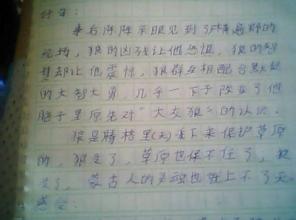 事后陈阵亲眼见到了狼群的
死场，狼的凶残让他恐惧，狼的智
慧却让他震惊，狼群互相配合默契
的大智大勇，几乎一下子改变了他
脑子里原先对“大灰狼”的认识。
狼是腾格里派下来保护草原
的，狼没了，草原也保不住了，狼
没了，蒙古人的灵魂也就上不了天。
感受：